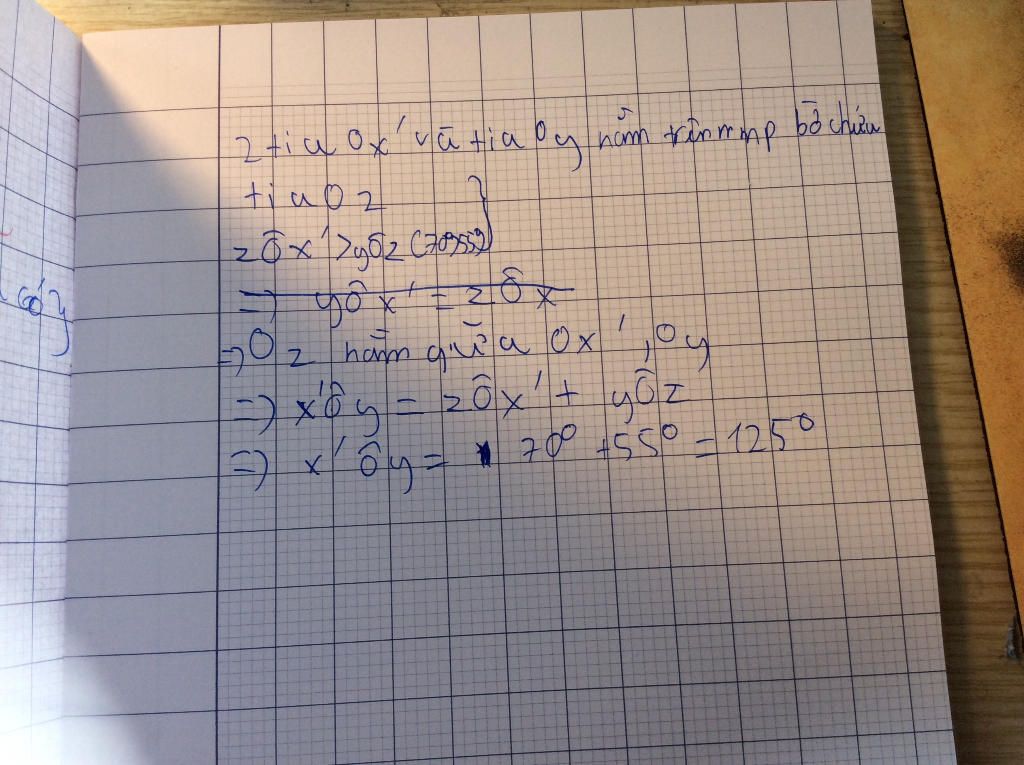 có y
2 tia Ox' và tia Oy nằm trên mmp bờ chứa
tia Oz }
zÔx' > yÔz (70>55)
=> yÔx' = zÔx
=> Oz nằm giữa Ox', Oy
=> x'Ôy = zÔx' + yÔz
=> x'Ôy = 70° + 55° = 125°